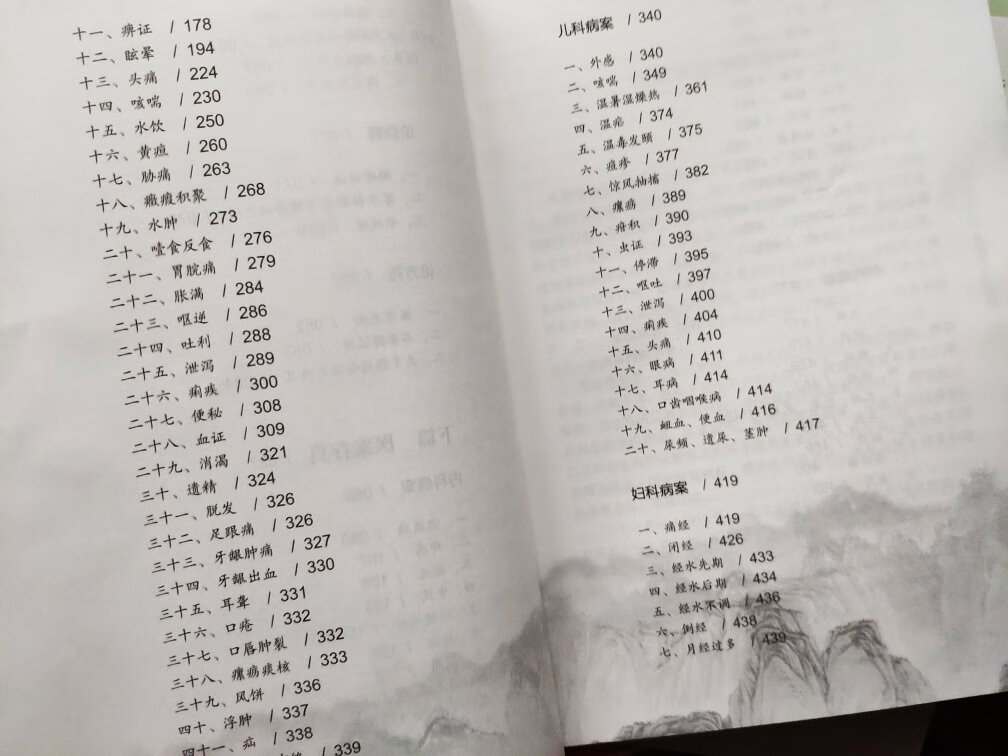 十一、痹证 / 178
十二、眩晕 / 194
十三、头痛 / 224
十四、咳喘 / 230
十五、水饮 / 250
十六、黄疸 / 260
十七、胁痛 / 263
十八、癥瘕积聚 / 268
十九、水肿 / 273
二十、噎食反食 / 276
二十一、胃脘痛 / 279
二十二、胀满 / 284
二十三、呕逆 / 286
二十四、吐利 / 288
二十五、泄泻 / 289
二十六、痢疾 / 300
二十七、便秘 / 308
二十八、血证 / 309
二十九、消渴 / 321
三十、遗精 / 324
三十一、脱发 / 326
三十二、足跟痛 / 326
三十三、牙龈肿痛 / 327
三十四、牙龈出血 / 330
三十五、耳聋 / 331
三十六、口疮 / 332
三十七、口唇肿裂 / 332
三十八、瘰疬痰核 / 333
三十九、风饼 / 336
四十、浮肿 / 337
四十一、疝 / 338
/ 339
儿科病案 / 340
一、外感 / 340
二、咳喘 / 349
三、温暑湿燥热 / 361
四、温疟 / 374
五、温毒发颐 / 375
六、痘疹 / 377
七、惊风抽搐 / 382
八、瘰疬 / 389
九、疳积 / 390
十、虫证 / 393
十一、停滞 / 395
十二、呕吐 / 397
十三、泄泻 / 400
十四、痢疾 / 404
十五、头痛 / 410
十六、眼病 / 411
十七、耳病 / 414
十八、口齿咽喉病 / 414
十九、衄血、便血 / 416
二十、尿频、遗尿、茎肿 / 417
妇科病案 / 419
一、痛经 / 419
二、闭经 / 426
三、经水先期 / 433
四、经水后期 / 434
五、经水不调 / 436
六、倒经 / 438
七、月经过多 / 439